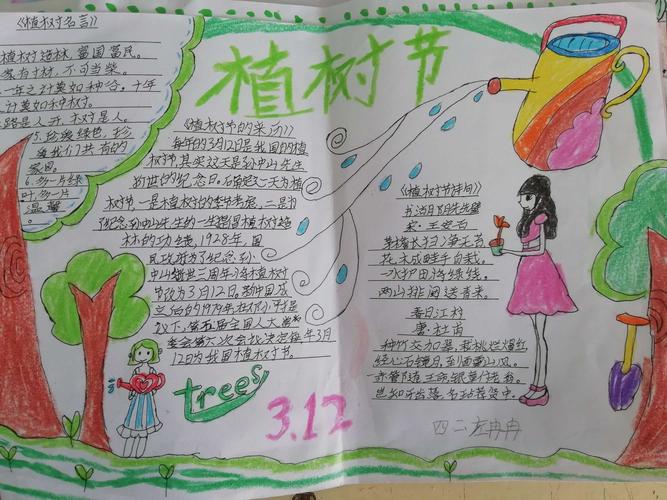 《植树名言》
植树造林，富国富民。
家有寸材，不可当柴。
一年之计莫如种谷，十年
计莫如种树。
路是人开，树是人
5.珍惜绿色，珍
我们共有的
家园。
6.多一片绿
叶，多一片
温馨
植树节
《植树节的来历》
每年的3月12日是我国的植
树节，其实这天是孙中山先生
逝世的纪念日。
植树节一是植树的季节
了纪念孙中山先生的一生提倡植树造
林的功绩，1928年，国
民政府为了纪念孙
中山逝世三周年，将植树
节改为3月12日。新中国成
立后的1979年，在邓小平提
议下，第五届全国人大常
委会第六次会议决定将每年3月
12日为我国植树节。
trees
3.12
《植树节诗句》
书湖阴先生壁
宋:王安石
茅檐长扫净无苔
花木成畦手自栽。
一水护田将绿绕，
两山排闼送青来。
春日江村
唐:杜甫
种竹交加翠，栽桃烂熳红
经心石镜月，到面雪山风。
赤管随王命，银章付老翁。
岂知牙齿落，名玷荐贤中。
四二 龙冉冉